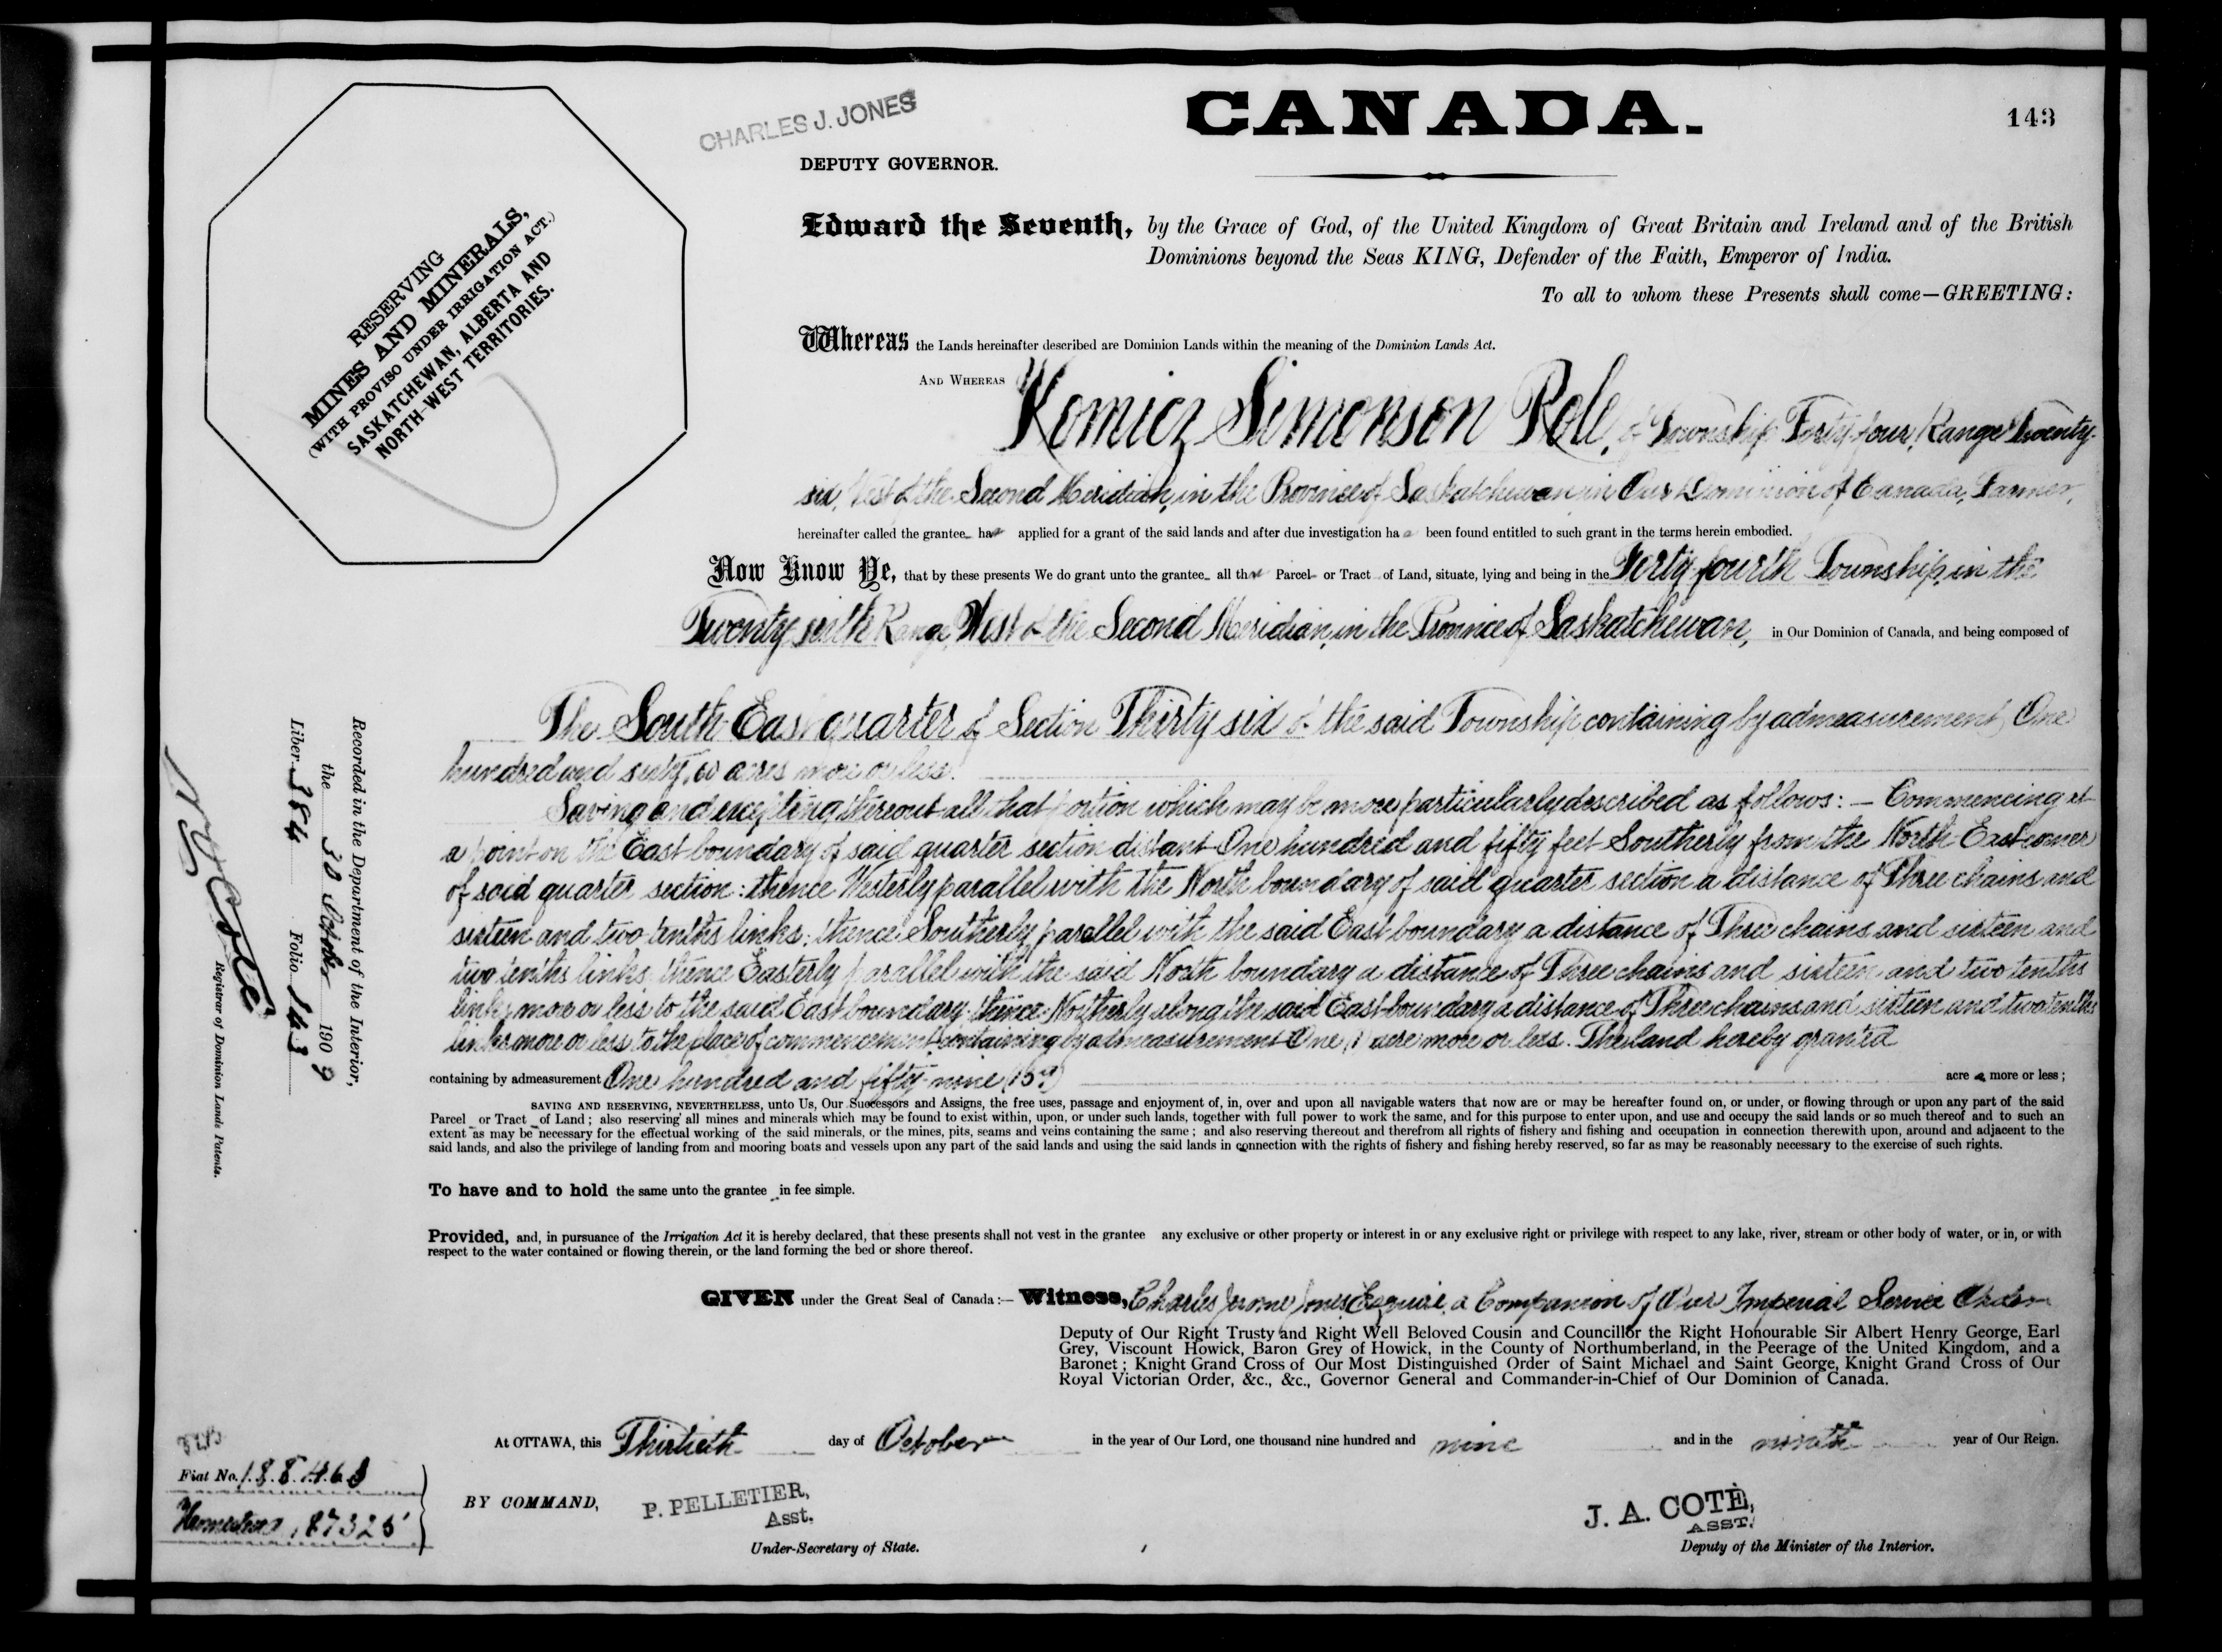 CANADA.
143
CHARLES J. JONES
DEPUTY GOVERNOR.
RESERVING
MINES AND MINERALS,
(WITH PROVISO UNDER IRRIGATION ACT.)
SASKATCHEWAN, ALBERTA AND
NORTH-WEST TERRITORIES.
Edward the Seventh, by the Grace of God, of the United Kingdom of Great Britain and Ireland and of the British
Dominions beyond the Seas KING, Defender of the Faith, Emperor of India.
To all to whom these Presents shall come—GREETING:
Whereas the Lands hereinafter described are Dominion Lands within the meaning of the Dominion Lands Act.
AND WHEREAS Komicz Simonson Role, of Township Forty four, Range Twenty-
six, West of the Second Meridian, in the Province of Saskatchewan in Our Dominion of Canada, Farmer,
hereinafter called the grantee has applied for a grant of the said lands and after due investigation has been found entitled to such grant in the terms herein embodied.
Now Know Ye, that by these presents We do grant unto the grantee all that Parcel or Tract of Land, situate, lying and being in the Forty fourth Township, in the
Twenty sixth Range, West of the Second Meridian, in the Province of Saskatchewan, in Our Dominion of Canada, and being composed of
The South East quarter of Section Thirty six of the said Township containing by admeasurement, One
hundred and sixty, 60 acres more or less.
Saving and excepting thereout all that portion which may be more particularly described as follows: — Commencing at
a point on the East boundary of said quarter section distant One hundred and fifty feet Southerly from the North East corner
of said quarter section: thence Westerly parallel with the North boundary of said quarter section a distance of Three chains and
sixteen and two tenths links; thence Southerly parallel with the said East boundary a distance of Three chains and sixteen and
two tenths links, thence Easterly parallel with the said North boundary a distance of Three chains and sixteen and two tenths
links more or less to the said East boundary: thence Northerly along the said East boundary a distance of Three chains and sixteen and two tenths
links more or less to the place of commencement, containing by admeasurement One (1) acre more or less. The land hereby granted
containing by admeasurement One hundred and fifty nine (159) acres more or less;
SAVING AND RESERVING, NEVERTHELESS, unto Us, Our Successors and Assigns, the free uses, passage and enjoyment of, in, over and upon all navigable waters that now are or may be hereafter found on, or under, or flowing through or upon any part of the said
Parcel or Tract of Land; also reserving all mines and minerals which may be found to exist within, upon, or under such lands, together with full power to work the same, and for this purpose to enter upon, and use and occupy the said lands or so much thereof and to such an
extent as may be necessary for the effectual working of the said minerals, or the mines, pits, seams and veins containing the same; and also reserving thereout and therefrom all rights of fishery and fishing and occupation in connection therewith upon, around and adjacent to the
said lands, and also the privilege of landing from and mooring boats and vessels upon any part of the said lands and using the said lands in connection with the rights of fishery and fishing hereby reserved, so far as may be reasonably necessary to the exercise of such rights.
To have and to hold the same unto the grantee in fee simple.
Provided, and, in pursuance of the Irrigation Act it is hereby declared, that these presents shall not vest in the grantee any exclusive or other property or interest in or any exclusive right or privilege with respect to any lake, river, stream or other body of water, or in, or with
respect to the water contained or flowing therein, or the land forming the bed or shore thereof.
GIVEN under the Great Seal of Canada:— Witness, Charles Jerome Jones Esquire, a Companion of Our Imperial Service Order
Deputy of Our Right Trusty and Right Well Beloved Cousin and Councillor the Right Honourable Sir Albert Henry George, Earl
Grey, Viscount Howick, Baron Grey of Howick, in the County of Northumberland, in the Peerage of the United Kingdom, and a
Baronet; Knight Grand Cross of Our Most Distinguished Order of Saint Michael and Saint George, Knight Grand Cross of Our
Royal Victorian Order, &c., &c., Governor General and Commander-in-Chief of Our Dominion of Canada.
At OTTAWA, this Thirtieth day of October in the year of Our Lord, one thousand nine hundred and nine and in the ninth year of Our Reign.
BY COMMAND,
P. PELLETIER,
Asst.
Under-Secretary of State.
J. A. COTÉ,
ASST.
Deputy of the Minister of the Interior.
Recorded in the Department of the Interior,
the 30 October 1909
Liber 384 Folio 143
Coté
Registrar of Dominion Lands Patents.
Fiat No. 188468
Homestead 187325